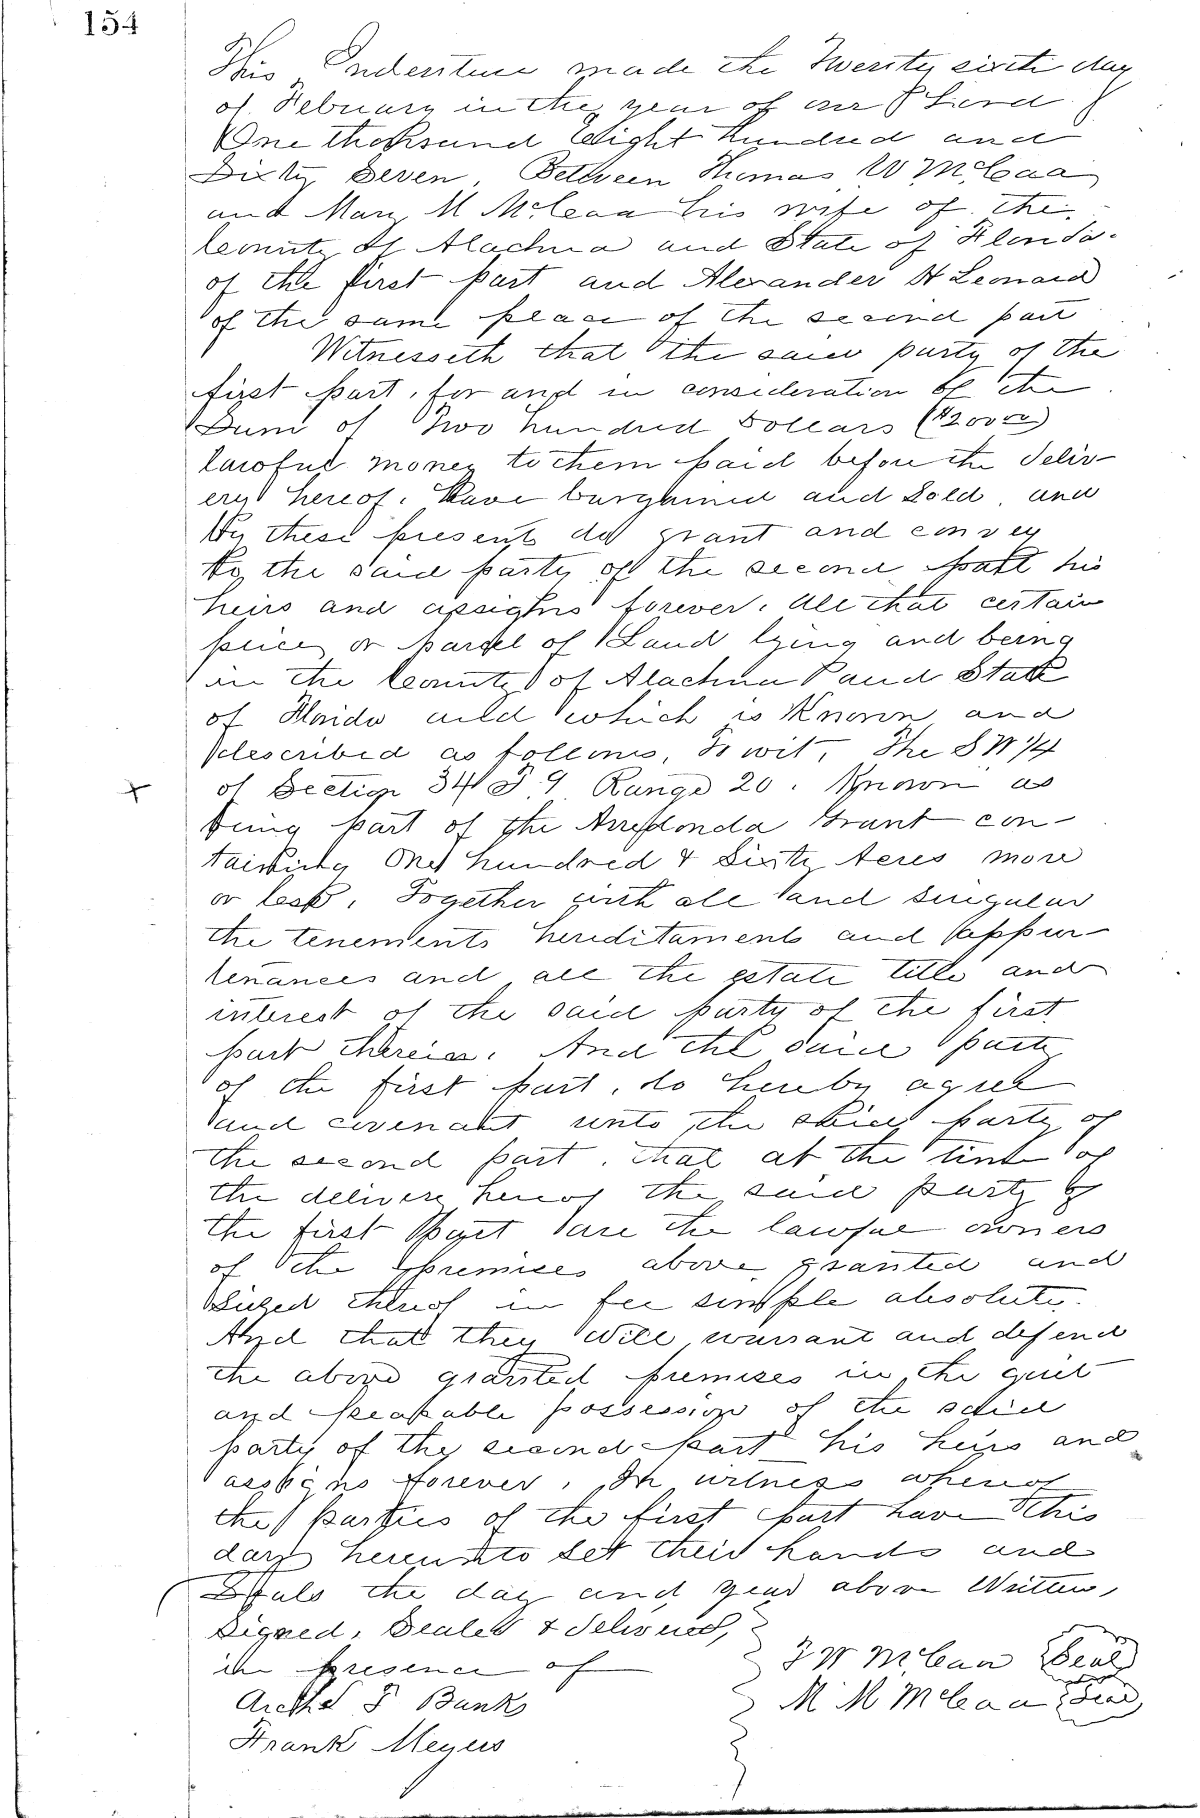 154
This Indenture made the Twenty sixth day
of February in the year of our Lord
One thousand Eight Hundred and
Sixty Seven, Between Thomas W McCaa
and Mary M McCaa his wife of the
County of Alachua and State of Florida.
of the first part and Alexander H Leonard
of the same place of the second part
Witnesseth that the said party of the
first part, for and in consideration of the
Sum of Two hundred Dollars ($200 00)
lawful money to them paid before the deliv-
ery hereof. Have bargained and Sold and
By these presents do grant and convey
to the said party of the second part his
heirs and assigns forever. All that certain
peice or parcel of Land lying and being
in the County of Alachua and State
of Florida and which is Known and
described as follows, To wit, The SW 1/4
x of Section 34 T 9 Range 20. Known as
being part of the Arredonda Grant con-
taining One hundred & Sixty Acres more
or less, Together with all and singular
the tenements hereditaments and appur-
tenances and all the estate title and
interest of the said party of the first
part therein. And the said party
of the first part, do hereby agree
and covenant unto the said party of
the second part. that at the time of
the delivery hereof the said party of
the first part are the lawful owners
of the premises above granted and
Siezed thereof in fee simple absolute.
And that they will warrant and defend
the above granted premises in the quiet
and peacable possession of the said
party of the second part his heirs and
assigns forever, In witness whereof
the parties of the first part have this
day hereunto set their hands and
Seals the day and year above Written,
Signed, Sealed & Delivered,
in presence of T W McCaa Seal
P Banks M M McCaa Seal
Frank Meyers